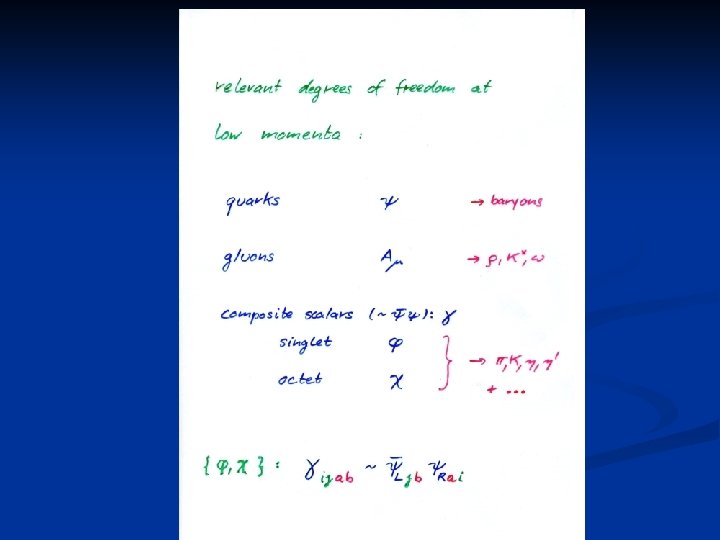 relevant degrees of freedom at
low momenta :
quarks ψ → baryons
gluons A_μ → ρ, K*, ω
composite scalars (~ ψ̄ψ): γ
singlet φ
octet χ } → π, K, η, η'
+ ...
{φ, χ} : γ_ijab ~ ψ̄_L jb ψ_R ai